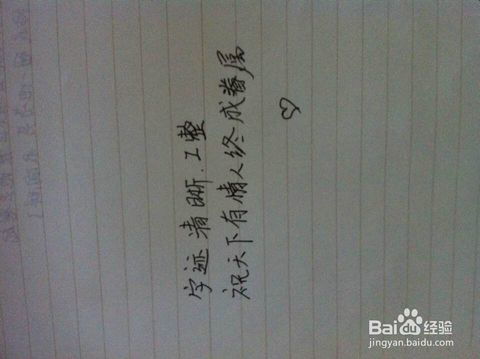 字迹清晰.工整
祝天下有情人终成眷属
Baidu经验
jingyan.baidu.com